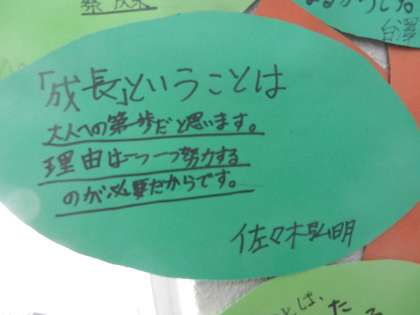 「成長」ということは
大人への第一歩だと思います。
理由は一つ一つ努力する
のが必要だからです。
佐々木弘明